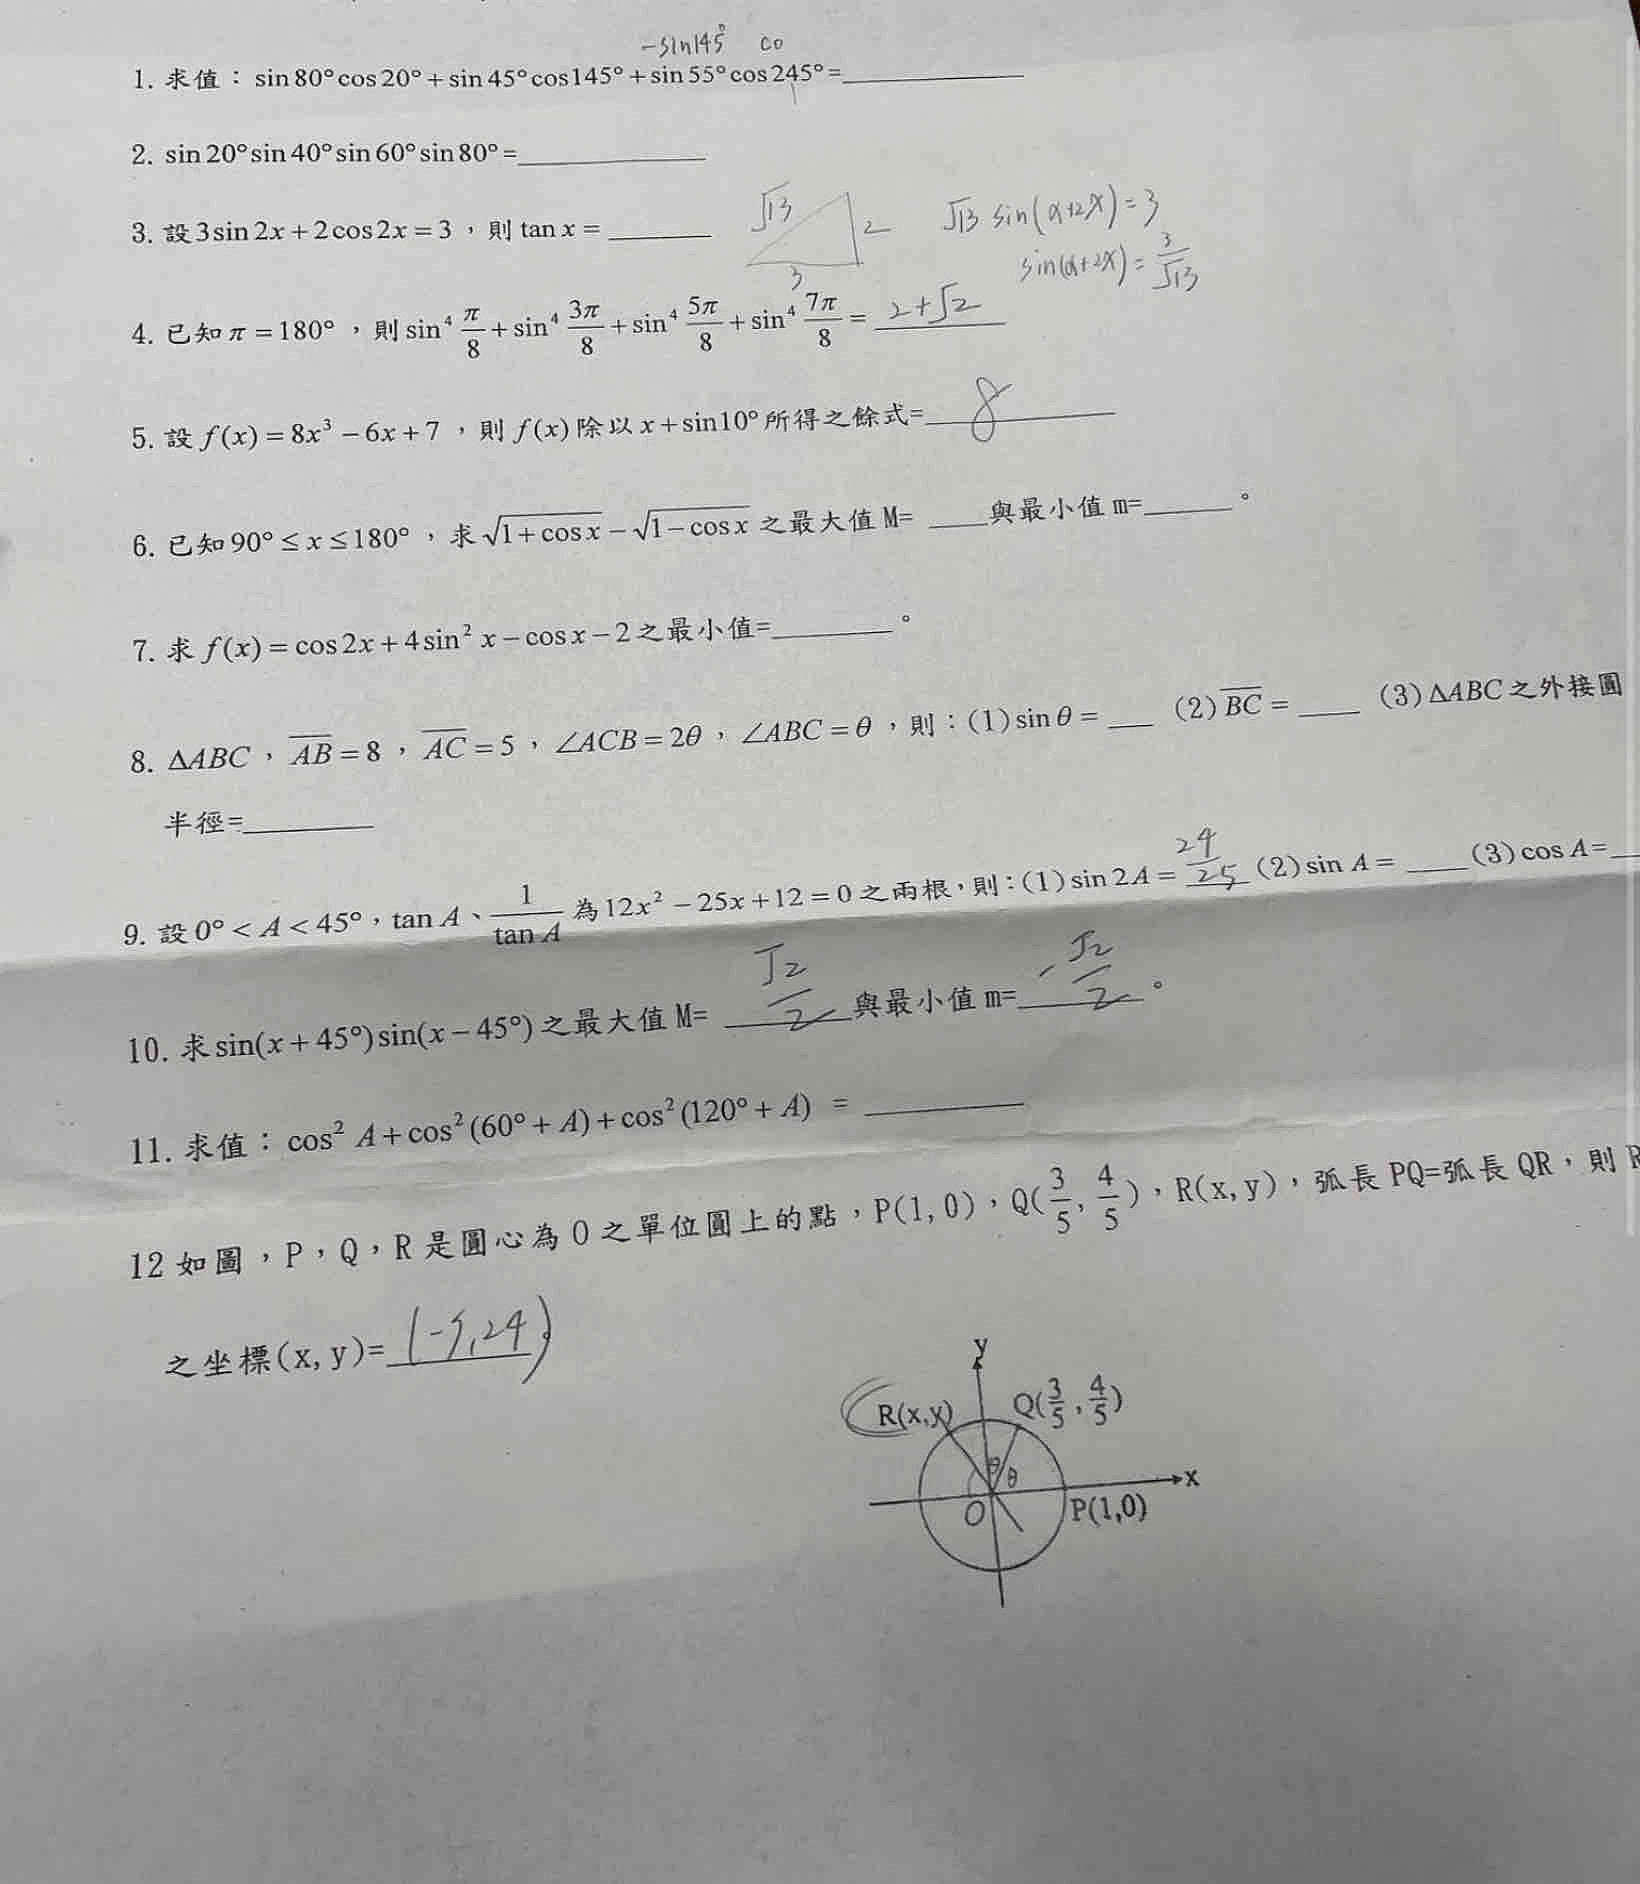 -sin145° co
1. 求值：sin80°cos20°+sin45°cos145°+sin55°cos245°=
2. sin20°sin40°sin60°sin80°=
3. 設3sin2x+2cos2x=3，則tan x=
√13 2 3
√13 sin(α+2x)=3
sin(α+2x)=3/√13
4. 已知π=180°，則sin⁴ π/8+sin⁴ 3π/8+sin⁴ 5π/8+sin⁴ 7π/8= 2+√2
5. 設f(x)=8x³-6x+7，則f(x)除以x+sin10°所得之餘式= 8
6. 已知90°≤x≤180°，求√(1+cos x)-√(1-cos x)之最大值M= 與最小值m= 。
7. 求f(x)=cos2x+4sin² x-cos x-2之最小值= 。
8. ΔABC，AB=8，AC=5，∠ACB=2θ，∠ABC=θ，則：(1)sinθ= (2)BC= (3)ΔABC之外接圓
半徑=
9. 設0°<A<45°，tan A、1/tan A為12x²-25x+12=0之兩根，則：(1)sin2A= 24/25 (2)sin A= (3)cos A=
10. 求sin(x+45°)sin(x-45°)之最大值M= √2/2 與最小值m= -√2/2 。
11. 求值：cos² A+cos²(60°+A)+cos²(120°+A) =
12 如圖，P，Q，R是圓心為O之單位圓上的點，P(1,0)，Q(3/5,4/5)，R(x,y)，弧長PQ=弧長QR，則R
之坐標(x,y)= (-7,24)
y
R(x,y) Q(3/5,4/5)
θ θ x
O P(1,0)